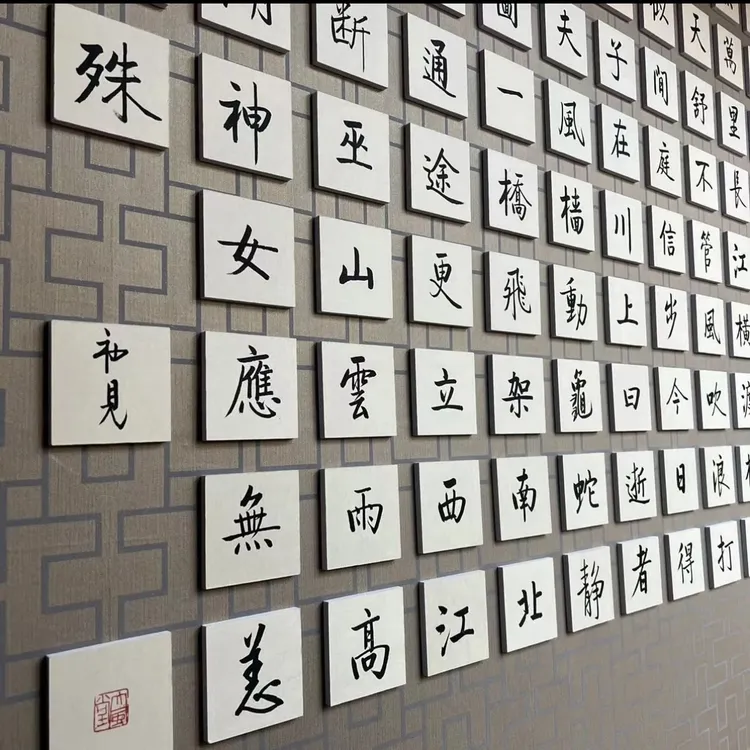 萬里長江橫渡
天舒不管風吹浪打
似閒庭信步今日得
子在川上曰逝者
夫風樯動龜蛇靜
圖一橋飛架南北
通途更立西江
斷巫山雲雨高
神女應無恙
殊
見